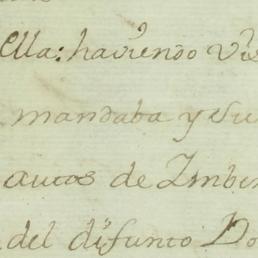 ella: haviendo vis
mandaba y su
autos de Imben
del difunto Do